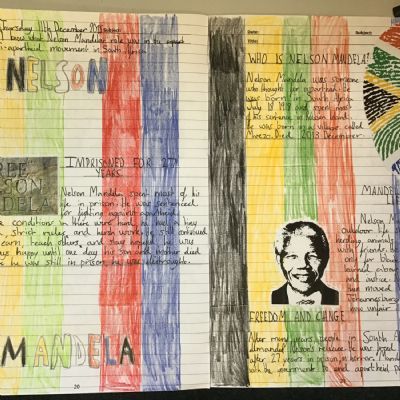 Thursday 11th December
know what Nelson Mandela's role was in the
-apartheid movement in South Africa
NELSON
FREE
NELSON
MANDELA
IMPRISONED FOR 27
YEARS
Nelson Mandela spent most of his
life in prison. He was sentenced
for fighting against apartheid.
conditions in there were hard as hell. They
strict rules, and hard work. He still continued
learn, teach others, and stay hopeful. He was
happy until one day his son and mother died
he was still in prison, he was distraught.
MANDELA
20
Date:
Subject:
Title:
WHO IS NELSON MANDELA?
Nelson Mandela was someone
who thought for apartheid. He
was born in South Africa
July 18 1918 and spent most
of his sentence in
He was born in a village called
Mvezo. Died 2013 December
MANDELA
Nelson
outdoor
herding animals
with friends.
only for black
learned about
and justice.
moved
Johannesburg
unfair
FREEDOM AND CHANGE
After many years, people in South
demanded Nelson's release. He was
after 27 years in prison,